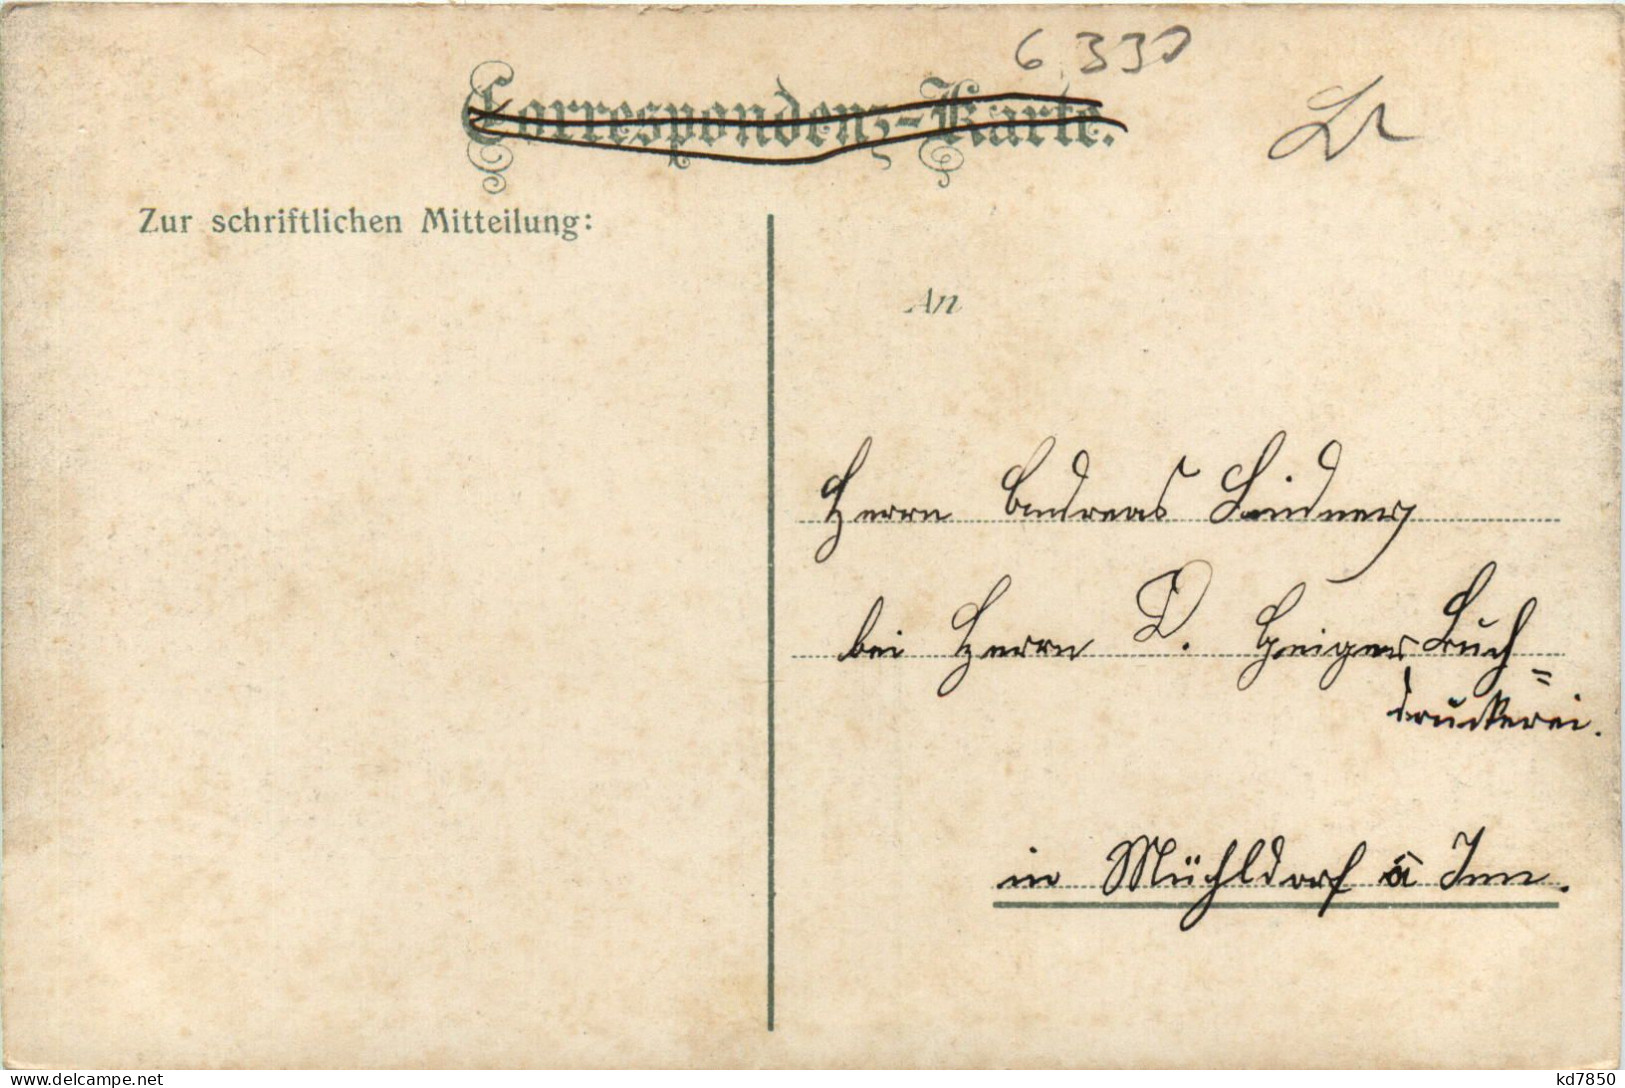 6 330
Correspondenz-Karte.
Zur schriftlichen Mitteilung:
An
Herrn Andreas Lindner
bei Herrn D. Geiger Buch=
druckerei.
in Mühldorf a Inn.
kd7850
www.delcampe.net